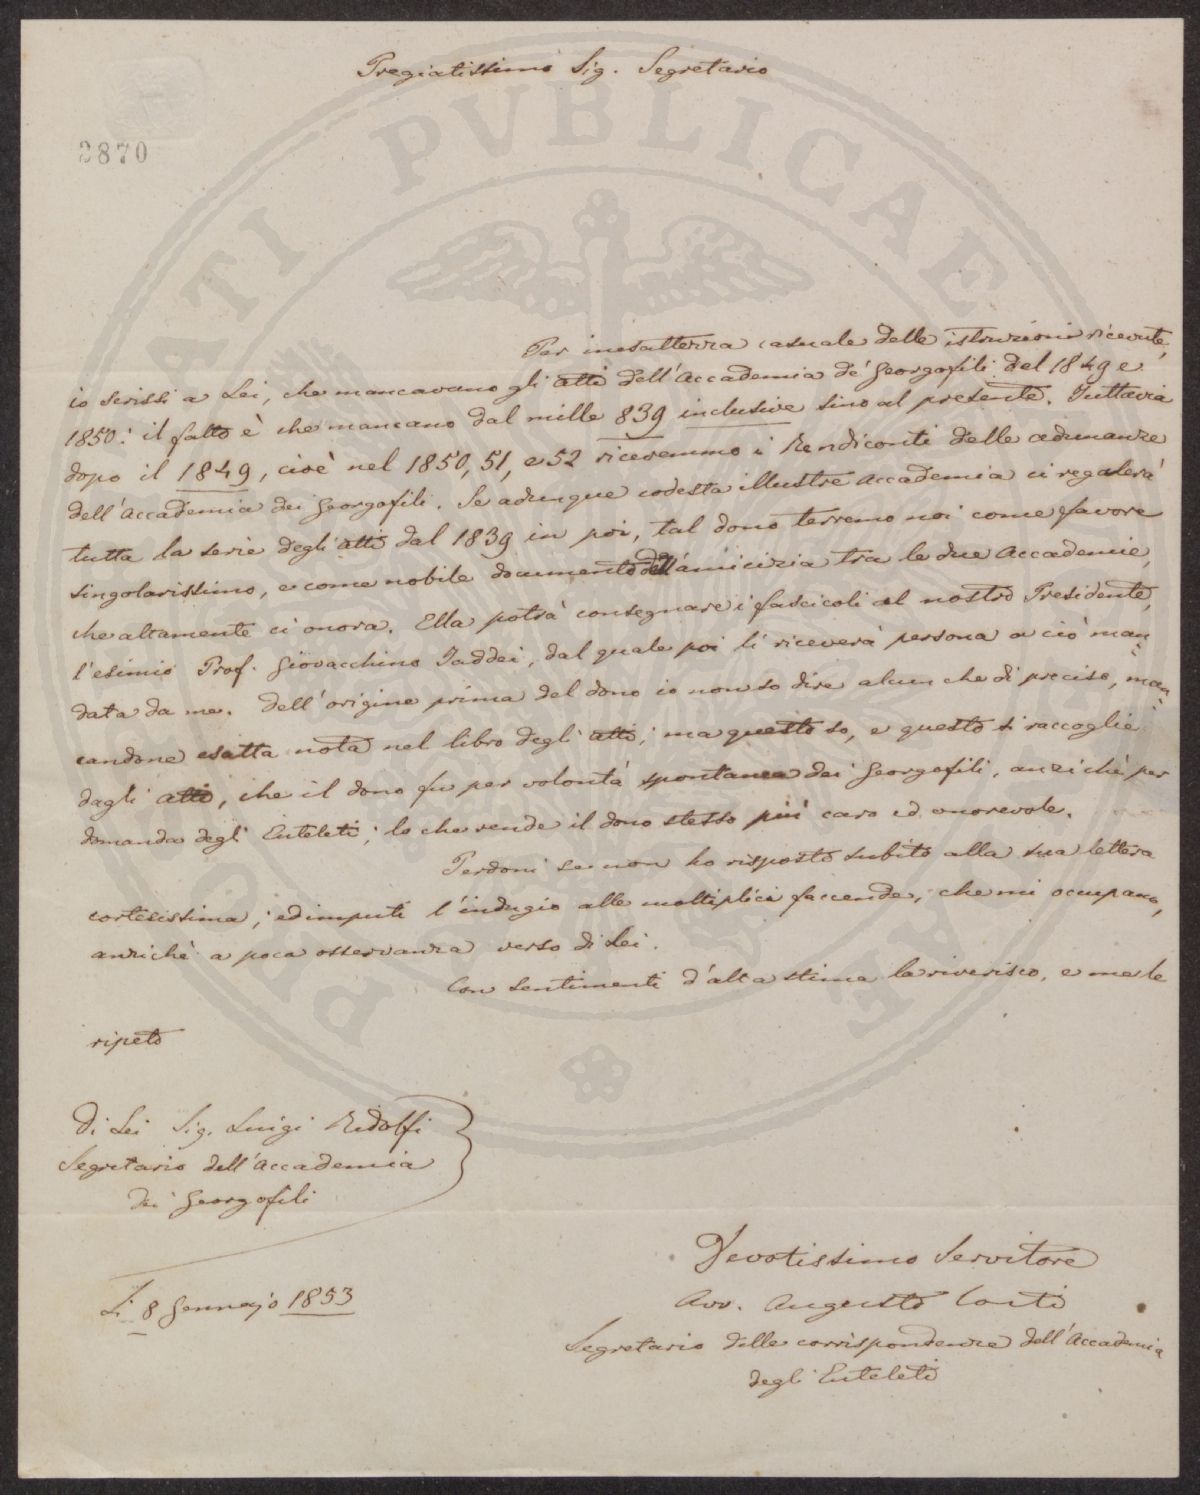 Pregiatissimo Sig. Segretario
2870
Per inesattezza casuale delle istruzioni ricevute,
io scrissi a Lei, che mancavano gli atti dell'Accademia de' Georgofili del 1849 e
1850: il fatto è che mancano dal mille 839 inclusive sino al presente. Tuttavia
dopo il 1849, cioè nel 1850, 51, e 52 ricevemmo i Rendiconti delle adunanze
dell'Accademia dei Georgofili. Se adunque codesta illustre Accademia ci regalerà
tutta la serie degli atti dal 1839 in poi, tal dono terremo noi come favore
singolarissimo, e come nobile documento dell'amicizia tra le due Accademie,
che altamente ci onora. Ella potrà consegnare i fascicoli al nostro Presidente,
l'esimio Prof. Giovacchino Taddei, dal quale poi li riceverà persona a ciò man=
data da me. Dell'origine prima del dono io non so dire alcun che di preciso, man=
candone esatta nota nel libro degli atti; ma questo so, e questo si raccoglie
dagli atti, che il dono fu per volontà spontanea dei Georgofili, anzichè per
domanda degli Euteleti; lo che rende il dono stesso più caro ed onorevole.
Perdoni se non ho risposto subito alla sua lettera
cortesissima; ed imputi l'indugio alle moltiplici faccende, che mi occupano,
anzichè a poca osservanza verso di Lei.
Con sentimenti d'alta stima la riverisco, e me le
ripeto
Di Lei Sig. Luigi Ridolfi
Segretario dell'Accademia
dei Georgofili
Li 8 Gennajo 1853
Devotissimo Servitore
Avv. Augusto Conti
Segretario delle corrispondenze dell'Accademia
degli Euteleti